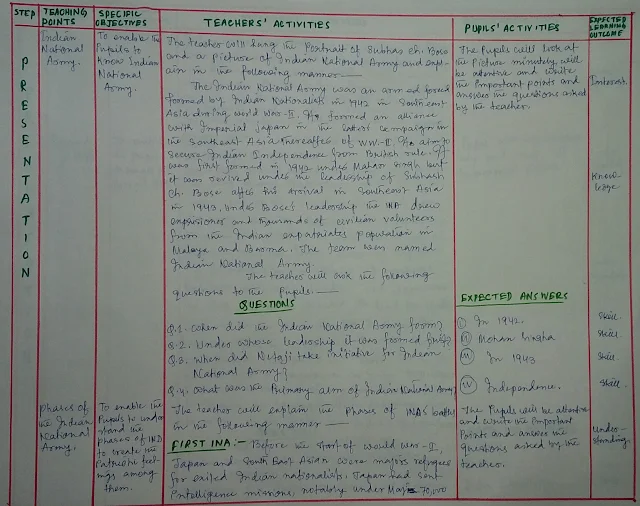 STEP
TEACHING POINTS
SPECIFIC OBJECTIVES
TEACHERS' ACTIVITIES
PUPILS' ACTIVITIES
EXPECTED LEARNING OUTCOME
PRESENTATION
Indian
National
Army.
To enable the
Pupils to
know Indian
National
Army.
The teacher will hang the Portrait of Subhas Ch. Bose
and a Picture of Indian National Army and expl-
ain in the following manner—
The Indian National Army was an armed force
formed by Indian Nationalist in 1942 in Southeast
Asia during world War-II. It formed an alliance
with Imperial Japan in the latter's campaign in
the Southeast Asia thereafter of WW-II. Its aim to
secure Indian Independence from British rule. It
was first formed in 1942 under Mohan Singh but
it was revived under the leadership of Subhash
Ch. Bose after his arrival in Southeast Asia
in 1943. Under Bose's leadership the INA drew
and thousands of civilian volunteers
from the Indian expatriates population in
Malaya and Burma. The team was named
Indian National Army.
The teacher will ask the following
questions to the Pupils.—
QUESTIONS
Q.1. When did the Indian National Army form?
Q.2. Under whose leadership it was formed first?
Q.3. When did Netaji take initiative for Indian
National Army?
Q.4. What was the Primary aim of Indian National Army?
The Pupils will look at
the Picture minutely, will
be attentive and write
the Important points and
answer the questions asked
by the teacher.
EXPECTED ANSWERS
(I) In 1942.
(II) Mohan Singha
(III) In 1943
(IV) Independence.
Interest.
Know-
ledge
Skill
Skill.
Skill.
Skill.
Phases of
the Indian
National
Army.
To enable the
Pupils to under
stand the
phases of IND
to create the
Patriotic feel-
ings among
them.
The teacher will explain the Phases of INA's
in the following manner—
FIRST INA:- Before the start of would War-II,
Japan and South East Asian were majors refugee
for exiled Indian nationalists. Japan had sent
Intelligence missions, notably under Maj 70,000
The Pupils will be attentive
and write the Important
Points and answer the
questions asked by the
teacher.
Under-
standing.